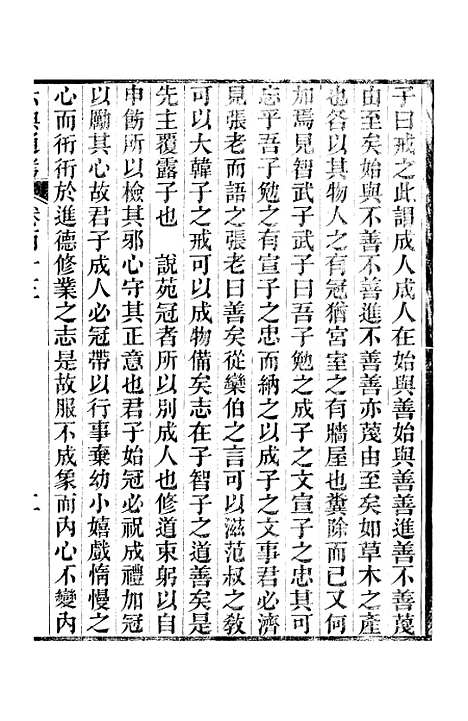 子曰戒之此謂成人成人在始與善始與善善進善不善蔑
由至矣始與不善不善進不善善亦蔑由至矣如草木之產
也各以其物人之有冠猶宮室之有牆屋也糞除而已又何
加焉見智武子武子曰吾子勉之成子之文宣子之忠其可
忘乎吾子勉之有宣子之忠而納之以成子之文事君必濟
見張老而語之張老曰善矣從欒伯之言可以滋范叔之教
可以大韓子之戒可以成物備矣志在子智子之道善矣是
先主覆露子也　說苑冠者所以別成人也修道束躬以自
申飭所以檢其邪心守其正意也君子始冠必祝成禮加冠
以勵其心故君子成人必冠帶以行事棄幼小嬉戲惰慢之
心而衎衎於進德修業之志是故服不成象而內心不變內